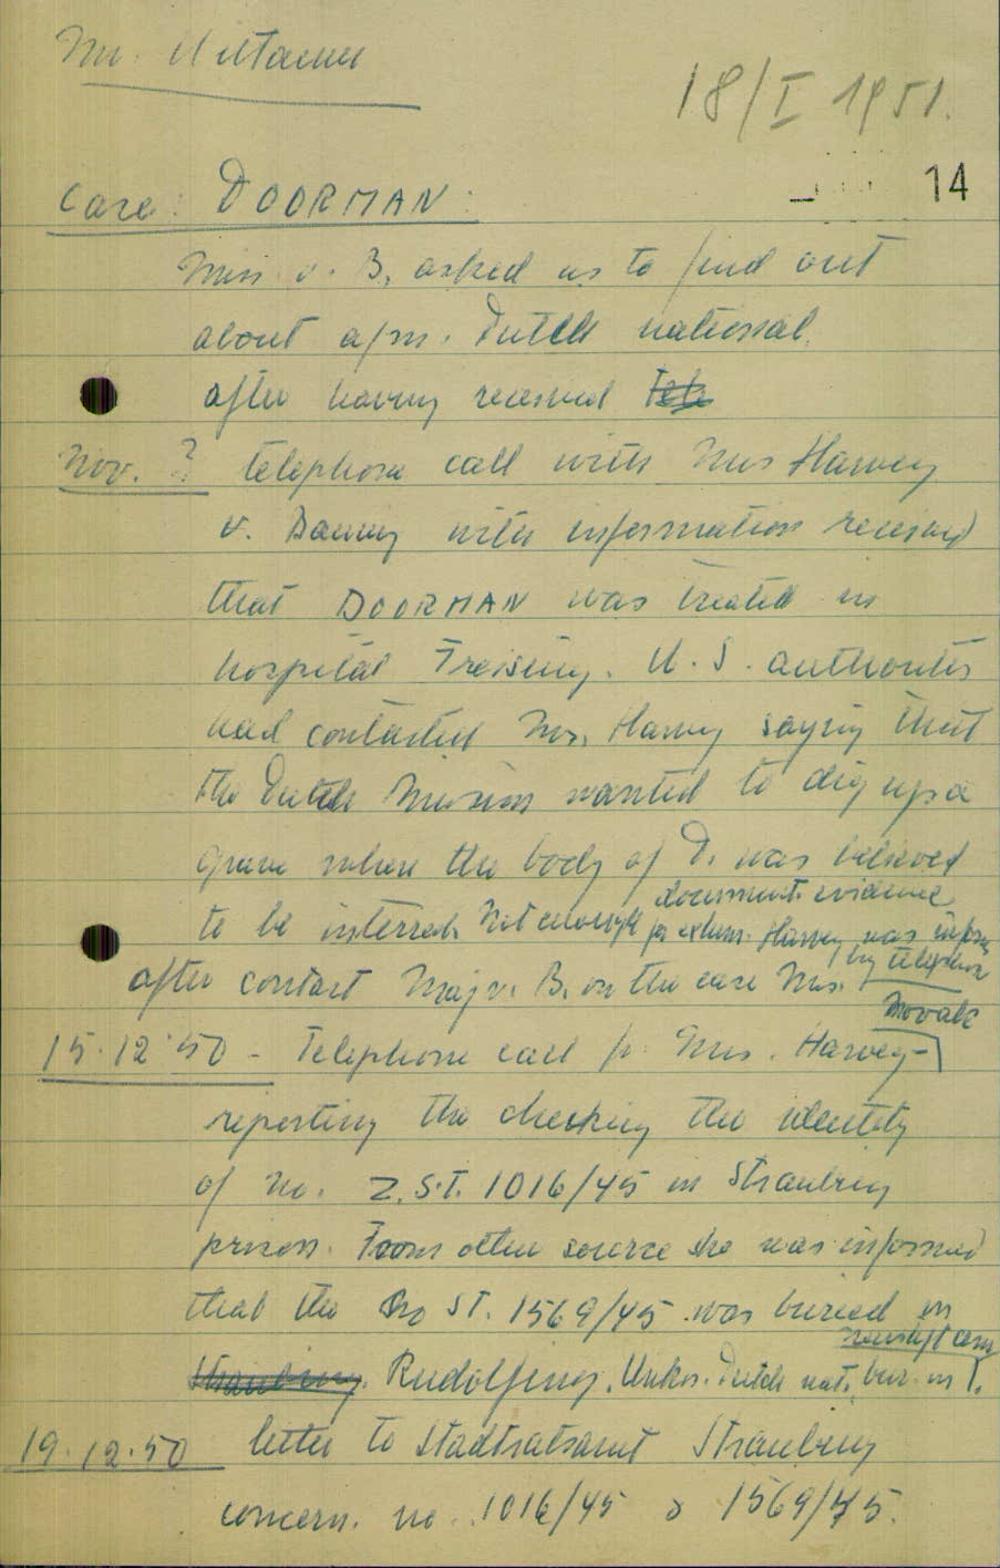 18/I 1951.
14
Case: DOORMAN:
Miss v. B. asked us to find out
about a/m. Dutch national.
after having received
Nov. ? telephone call with Mrs Harvey
v. with information received
that DOORMAN was treated in
hospital Freising. U.S. authorities
had contacted Mrs. Harvey saying that
the Dutch Mission wanted to dig up a
grave where the body of D. was believed
document. evidence
to be interred. Not enough for exhum. Harvey was
by telephone
after contact Maj v. B. on the case Mrs.
15.12.50 - Telephone call fr. Mrs. Harvey-
reporting the checking the identity
of no. Z.S.T. 1016/45 in Straubing
prison. From other source she was informed
that the no ST. 1569/45 was buried in
Straubing. Rudolfing. Unkn. Dutch nat. bur. in
19.12.50 letter to Stadtratsamt Straubing
concern. no. 1016/45 & 1569/45.